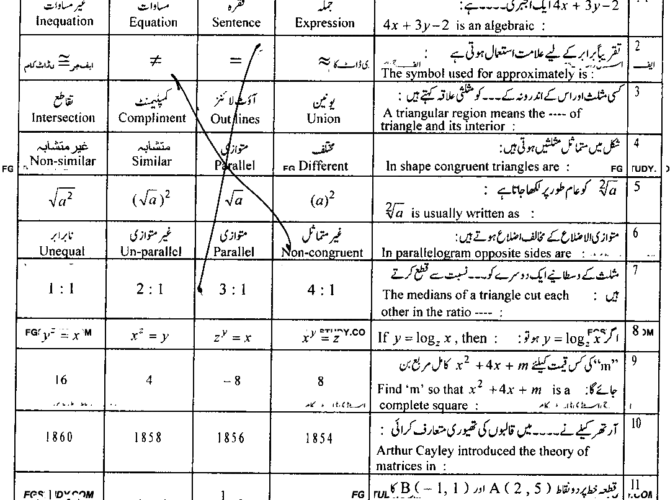 غیر مساوات مساوات فقرہ جملہ
Inequation Equation Sentence Expression
4x + 3y−2 is an algebraic :
2 تقریباً برابر کے لیے علامت استعمال ہوتی ہے :
≅ ≠ = ≈
The symbol used for approximately is :
3 کسی مثلث اور اس کے اندرونہ کے ---- کو مثلثی علاقہ کہتے ہیں :
تقاطع کمپلیمنٹ آؤٹ لائنز یونین
Intersection Compliment Outlines Union
A triangular region means the ---- of
triangle and its interior :
4 شکل میں متماثل مثلثیں ہوتی ہیں:
غیر متشابہ متشابہ متوازی مختلف
Non-similar Similar Parallel Different
In shape congruent triangles are :
5 ²√a کو عام طور پر لکھا جاتا ہے :
√a² (√a)² √a (a)²
²√a is usually written as :
6 متوازی الاضلاع کے مخالف اضلاع ہوتے ہیں:
نابرابر غیر متوازی متوازی غیر متماثل
Unequal Un-parallel Parallel Non-congruent
In parallelogram opposite sides are :
7 مثلث کے وسطانیے ایک دوسرے کو ---- نسبت سے قطع کرتے
ہیں :
1 : 1 2 : 1 3 : 1 4 : 1
The medians of a triangle cut each
other in the ratio ---- :
8 اگر y = log_z x ہو تو :
y^z = x x^z = y z^y = x x^y = z
If y = log_z x , then :
9 "m" کی کس قیمت کیلئے x² + 4x + m کامل مربع بن
جائے گا:
16 4 −8 8
Find 'm' so that x² +4x + m is a
complete square :
10 آرتھر کیلے نے ---- میں قالبوں کی تھیوری متعارف کرائی :
1860 1858 1856 1854
Arthur Cayley introduced the theory of
matrices in :
11 A ( 2 , 5 ) اور B ( − 1 , 1 )